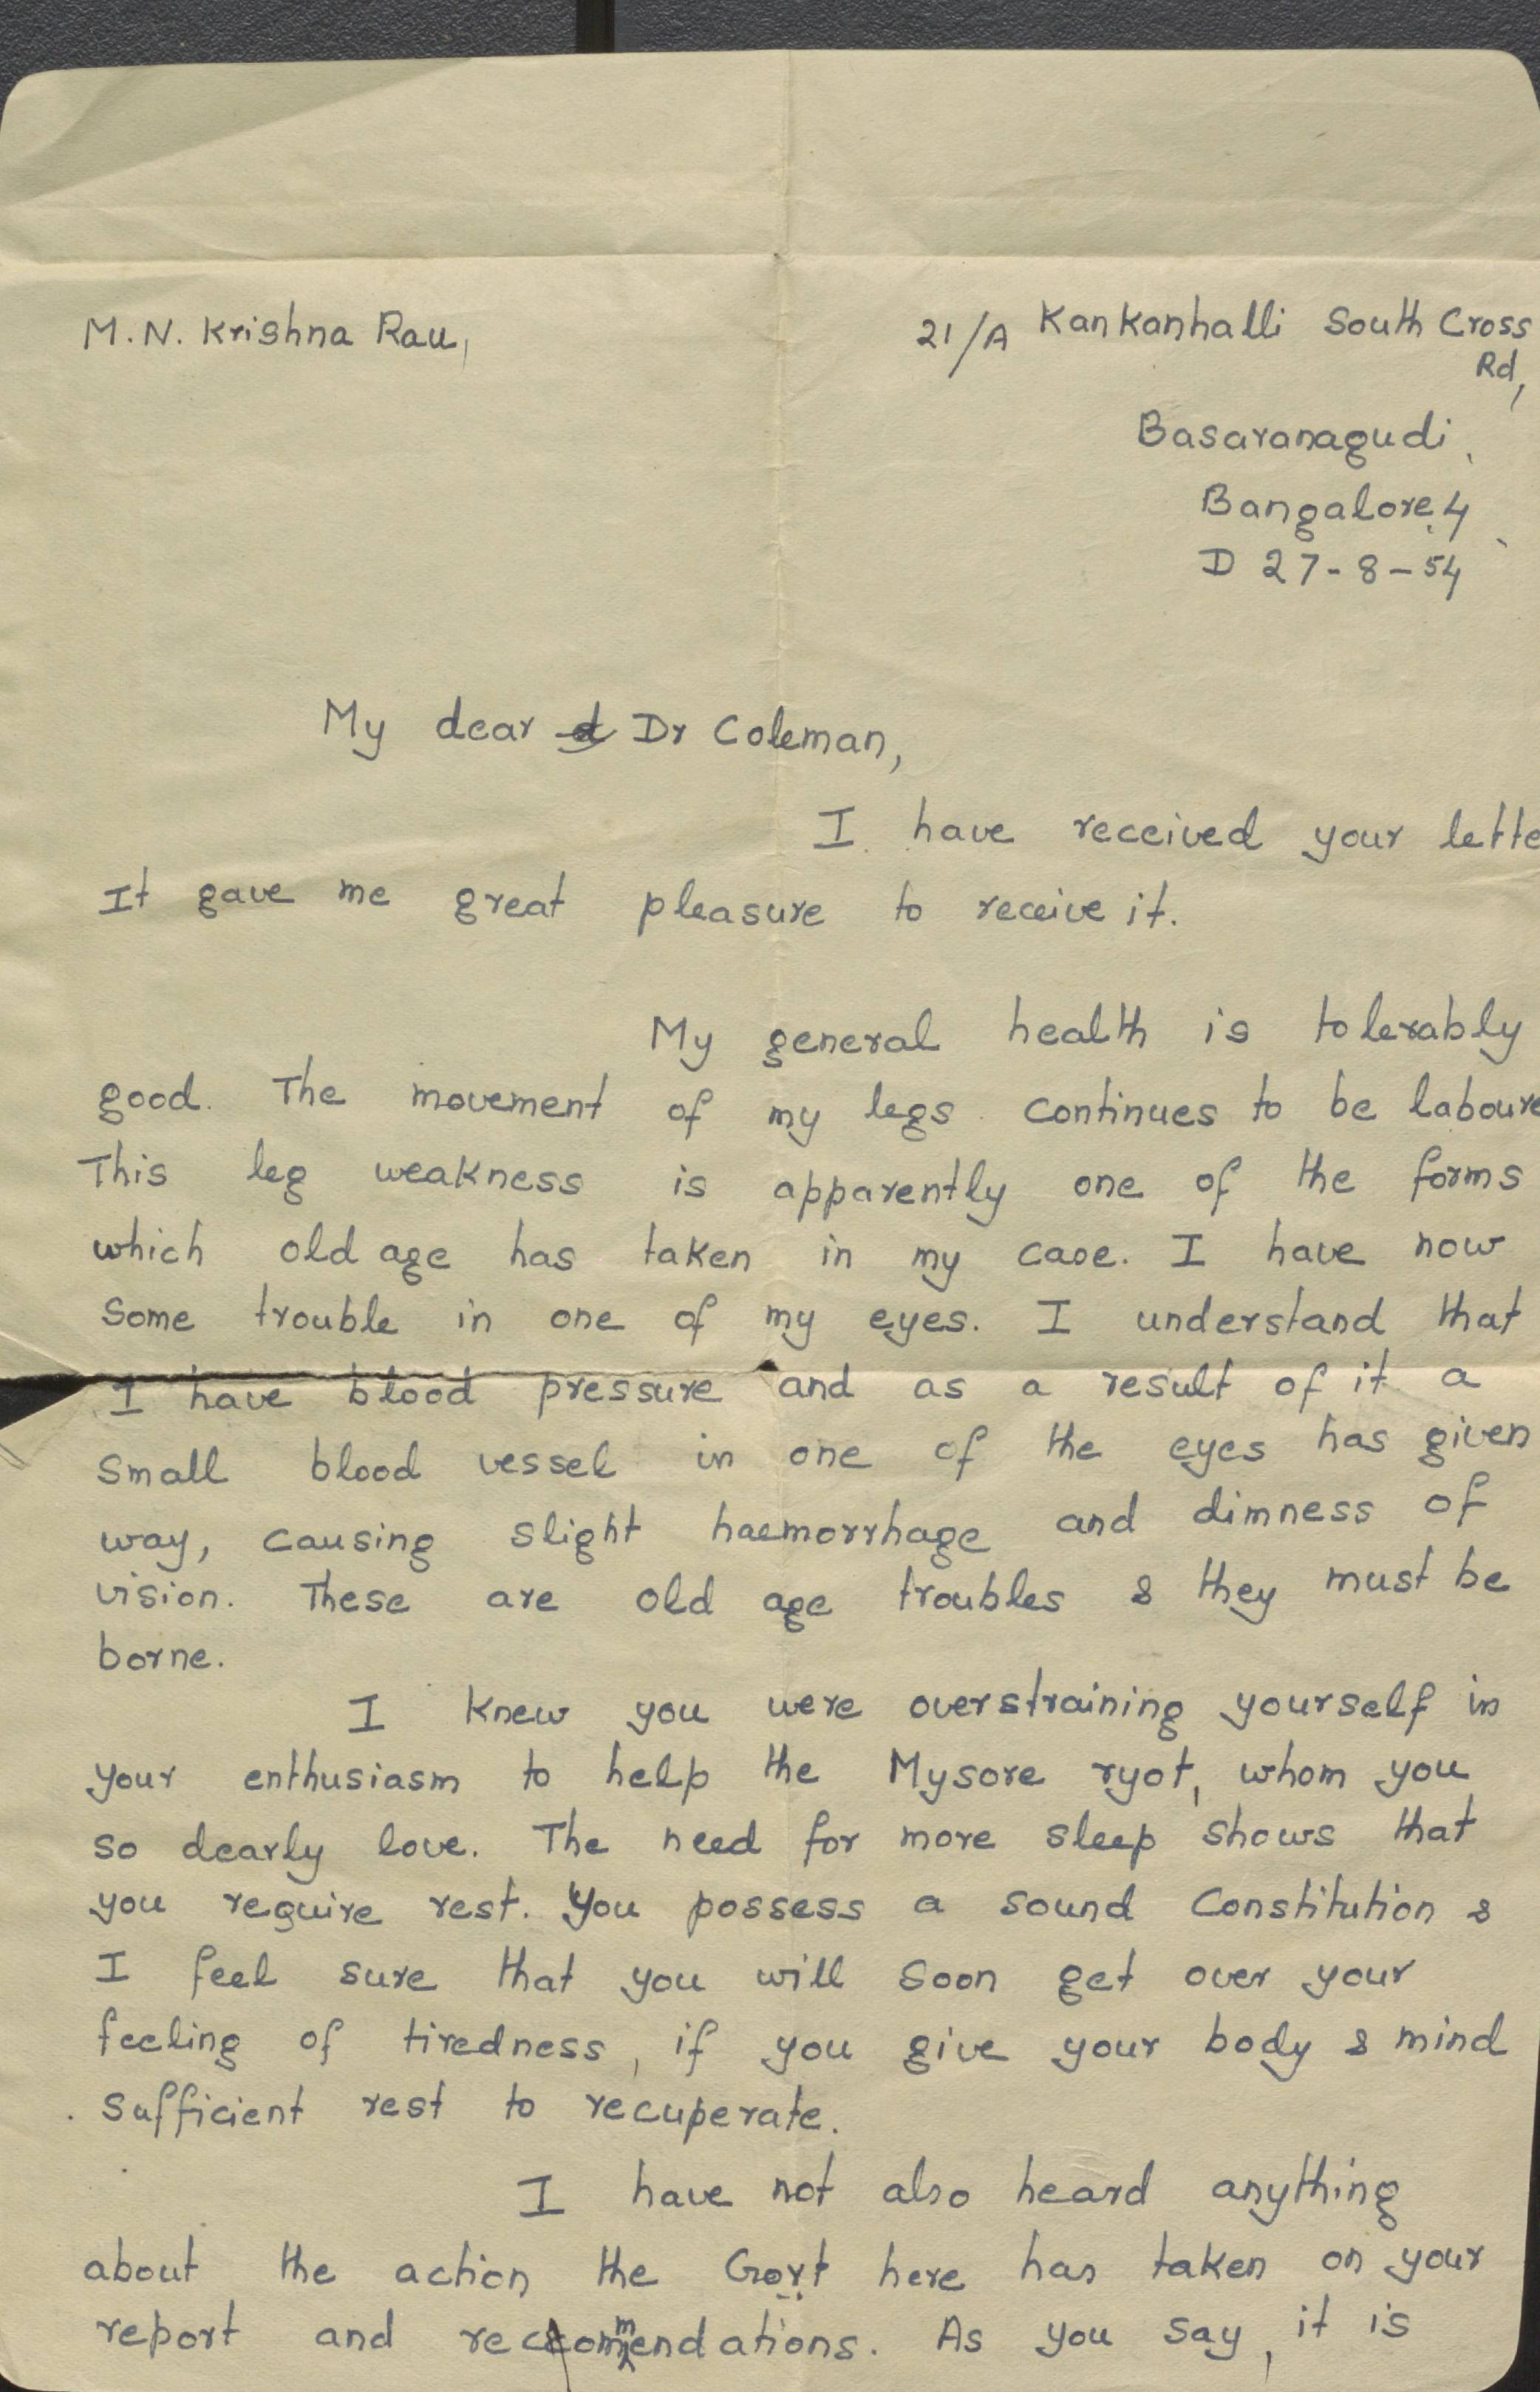 M.N. Krishna Rau,
21/A Kankanhalli South Cross
Rd,
Basavanagudi,
Bangalore 4,
D 27-8-54
My dear d Dr Coleman,
I have received your lette
It gave me great pleasure to receive it.
My general health is tolerably
good. The movement of my legs continues to be laboure
This leg weakness is apparently one of the forms
which old age has taken in my case. I have now
some trouble in one of my eyes. I understand that
I have blood pressure and as a result of it a
small blood vessel in one of the eyes has given
way, causing slight haemorrhage and dimness of
vision. These are old age troubles & they must be
borne.
I knew you were overstraining yourself in
your enthusiasm to help the Mysore ryot, whom you
so dearly love. The need for more sleep shows that
you require rest. You possess a sound constitution &
I feel sure that you will soon get over your
feeling of tiredness, if you give your body & mind
sufficient rest to recuperate.
I have not also heard anything
about the action the Govt here has taken on your
report and recommendations. As you say, it is